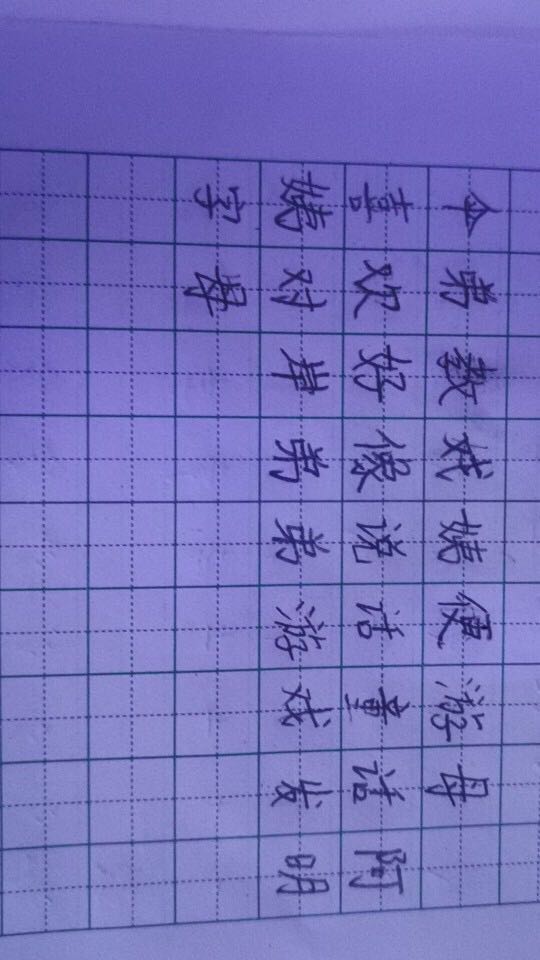 伞弟教戏姨便游母
喜欢好像说话童话阿
姨对弟弟游戏发明
字母